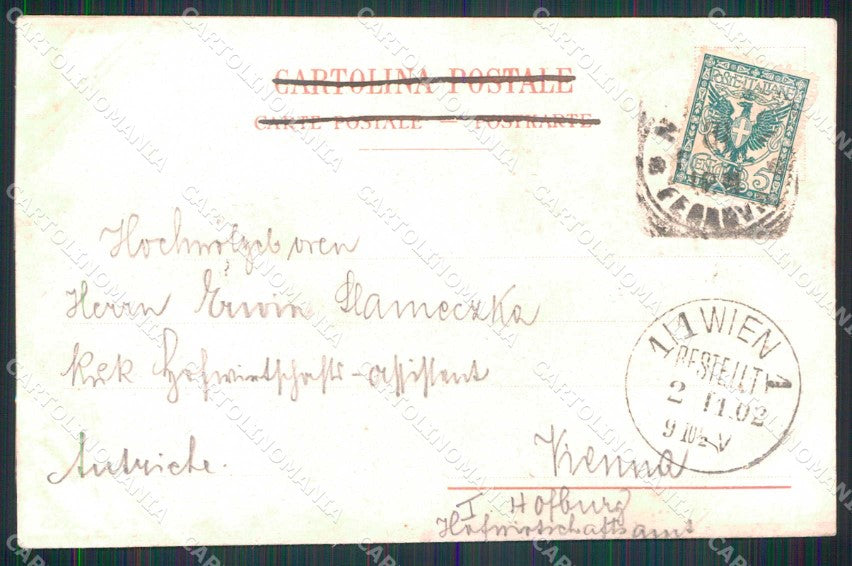 CARTOLINA POSTALE
CARTE POSTALE — POSTKARTE
POSTE ITALIANE
CENT. 5
FERROVIA
Hochwolgeboren
Herrn Erwin Slameczka
KuK Hofwirtschafts-Assistent
Autriche.
Vienna
I Hofburg
Hofwirtschaftsamt
1/1 WIEN 1
BESTELLT
2 11.02
CARTOLINOMANIA